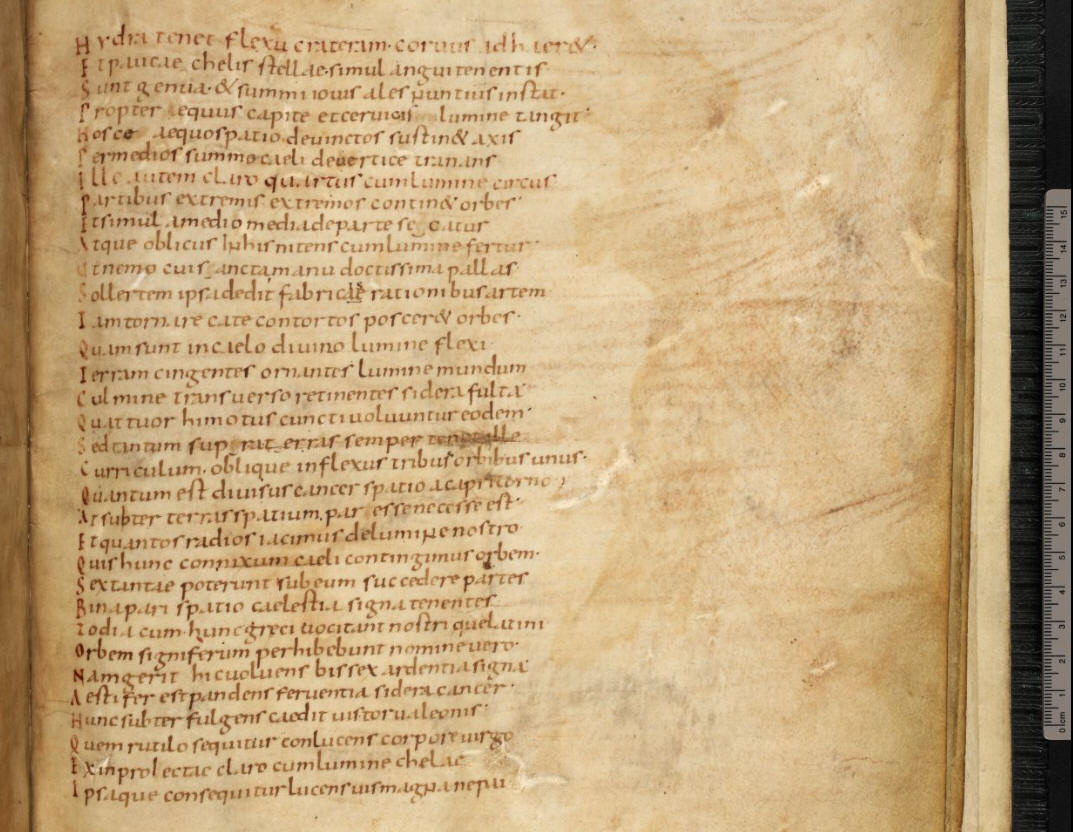 Hydra tenet flexu crateram· coruus adhaer&·
Et paucae chelis stellae· simul anguitenentis·
Sunt genua· & summi iouis ales nuntius instat·
Propter equus capite et ceruicis lumine tangit·
Hosce aequo spatio deuinctos sustin& axis
Per medios summo caeli deuertice tranans
Ille autem claro quartus cum lumine circus·
Partibus extremis extremos contin& orbes·
Et simul a medio media de parte secatur
Atque oblicus in his nitens cum lumine fertur·
Ut nemo cui sancta manu doctissima pallas·
Sollertem ipsa dedit fabricae rationibus artem
Iam tornare cate contortos poscer& orbes·
Quam sunt in caelo diuino lumine flexi·
Terram cingentes ornantes lumine mundum
Culmine transuerso retinentes sidera fulta·
Quattuor hi motus cuncti uoluuntur eodem·
Sed tantum supera terras semper
Curriculum· oblique inflexus tribus orbibus unus·
Quantum est diuisus cancer spatio a capricorno
At subter terras spatium. par esse necesse est·
Et quantos radios iacimus de lumine nostro
Quis hunc connixum caeli contingimus orbem·
Sex tantae poterunt sub eum succedere partes
Bina pari spatio caelestia signa tenentes
Zodia cum· hunc greci uocitant nostrique latini
Orbem signiferum perhibebunt nomine uero·
Nam gerit hic uoluens bissex ardentia signa·
Aestifer est pandens feruentia sidera cancer·
Hunc subter fulgens caedit uis torua leonis·
Quem rutilo sequitur conlucens corpore uirgo
Exin proiectae claro cum lumine chelae
Ipsaque consequitur lucens uis magna nepai